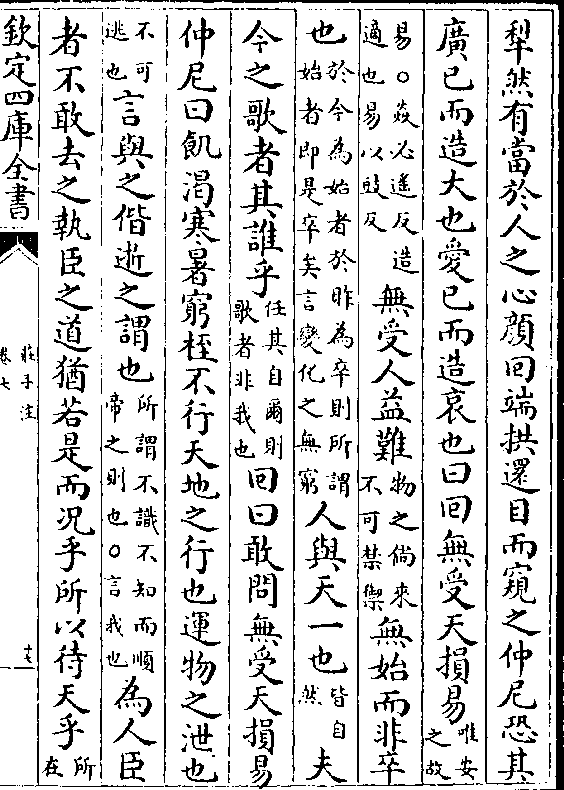 犂然有當於人之心顔回端拱還目而窺之仲尼恐其
廣已而造大也愛已而造哀也曰回無受天損易唯安之故
易○焱必遙反造適也易以䜴反無受人益難物之倘來不可禁禦無始而非卒
也於今為始者於昨為卒則所謂始者即是卒矣言變化之無窮人與天一也皆自然夫
今之歌者其誰乎任其自爾則歌者非我也回曰敢問無受天損易
仲尼曰飢渴寒暑窮桎不行天地之行也運物之泄也
不可逃也言與之偕逝之謂也所謂不識不知而順帝之則也○言我也為人臣
者不敢去之執臣之道猶若是而況乎所以待天乎所在
欽定四庫全書
莊子注
卷七